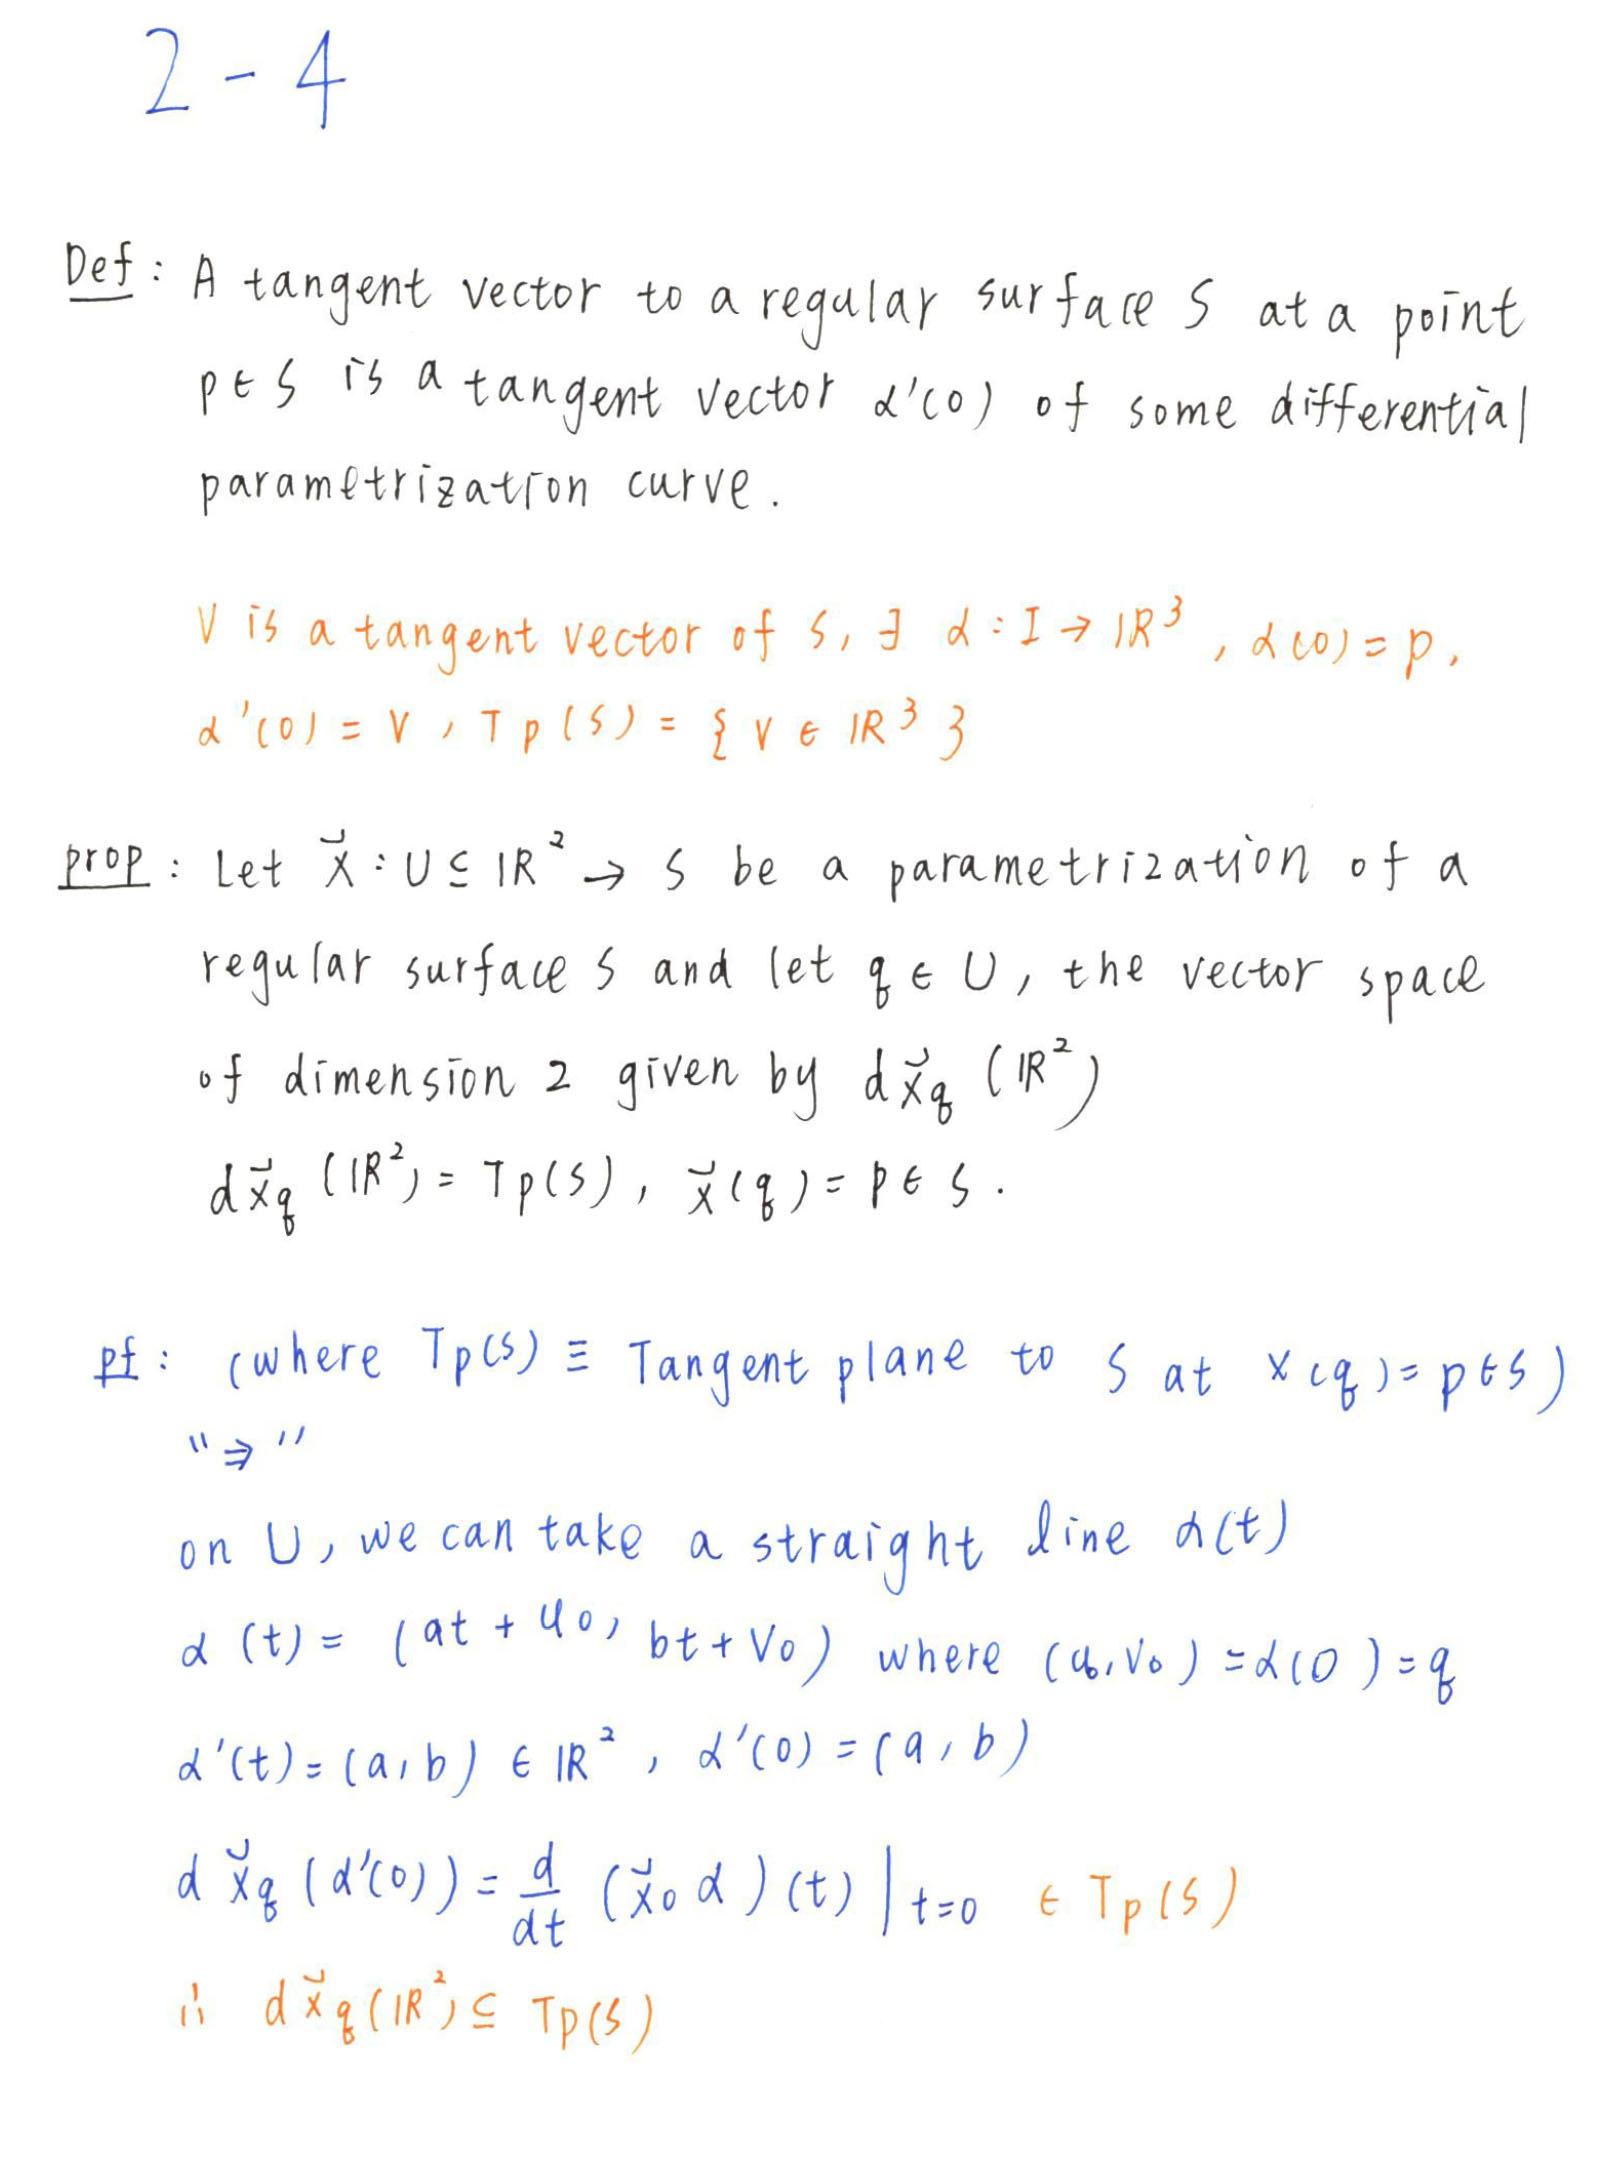 2-4
Def: A tangent vector to a regular surface S at a point
p∈S is a tangent vector α'(0) of some differential
parametrization curve.
V is a tangent vector of S, ∃ α: I → ℝ³, α(0)=p,
α'(0)=V, Tp(S)={V∈ℝ³}
prop: Let x⃗: U⊆ℝ² → S be a parametrization of a
regular surface S and let q∈U, the vector space
of dimension 2 given by dx⃗q(ℝ²)
dx⃗q(ℝ²)=Tp(S), x⃗(q)=p∈S.
pf: (where Tp(S) ≡ Tangent plane to S at x(q)=p∈S)
"⇒"
on U, we can take a straight line α(t)
α(t)=(at+u₀, bt+v₀) where (u₀,v₀)=α(0)=q
α'(t)=(a,b)∈ℝ², α'(0)=(a,b)
dx⃗q(α'(0))=d/dt(x⃗∘α)(t)|t=0 ∈ Tp(S)
∴ dx⃗q(ℝ²)⊆Tp(S)